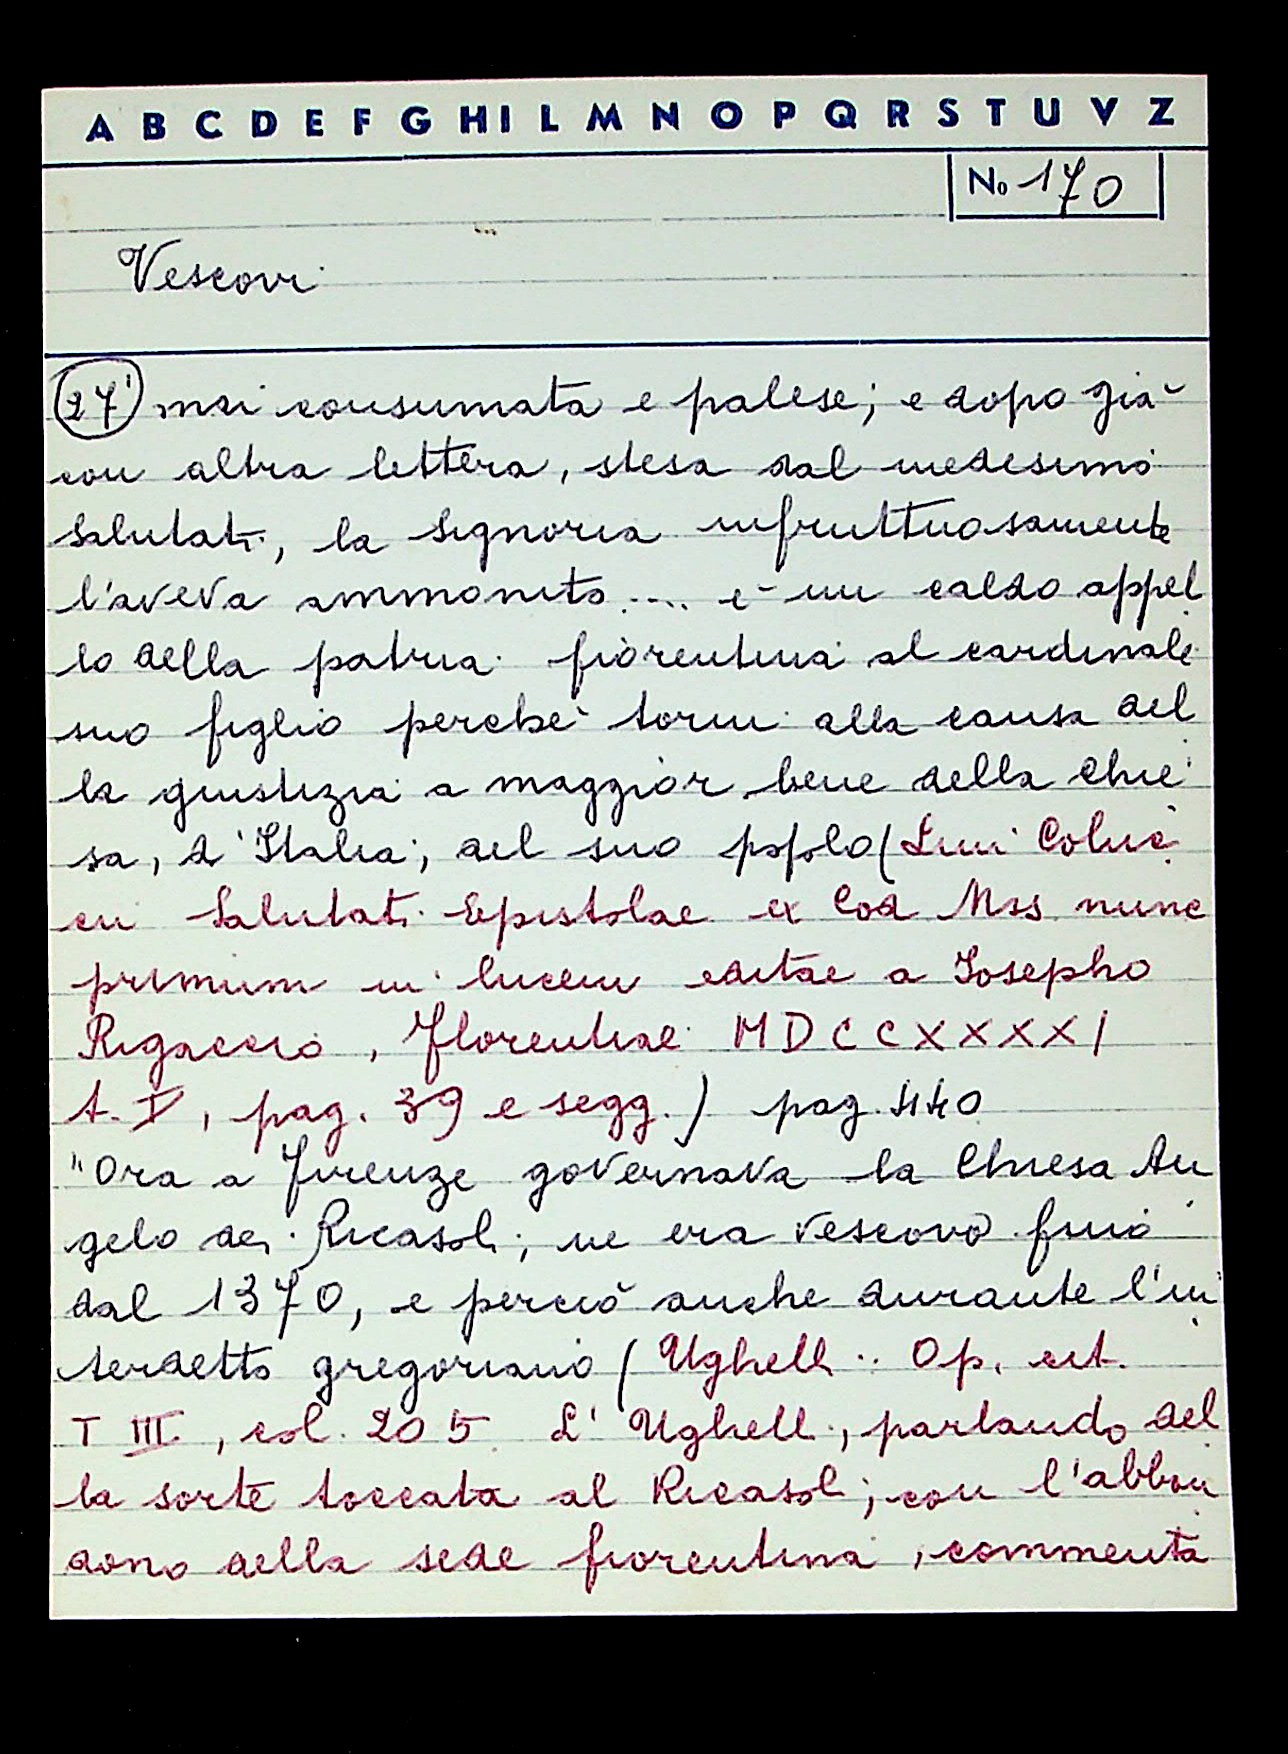 A B C D E F G H I L M N O P Q R S T U V Z
No 170
Vescovi
27) mai consumata e palese; e dopo già
con altra lettera, stesa dal medesimo
Salutati, la Signoria infruttuosamente
l'aveva ammonito.... è un caldo appel
lo della patria fiorentina al cardinale
suo figlio perchè torni alla causa del
la giustizia a maggior bene della Chie
sa, d'Italia, del suo popolo (Lini Coluc
ci Salutati Epistolae ex Cod Mss nunc
primum in lucem editae a Josepho
Rigaccio, Florentiae MDCCXXXXI
t. I, pag. 39 e segg.) pag. 440
"Ora a Firenze governava la Chiesa An
gelo dei Ricasoli; ne era vescovo fino
dal 1370, e perciò anche durante l'in
terdetto gregoriano (Ughelli.. Op. cit.
T III, col. 205 L'Ughelli, parlando del
la sorte toccata al Ricasoli, con l'abban
dono della sede fiorentina, commenta